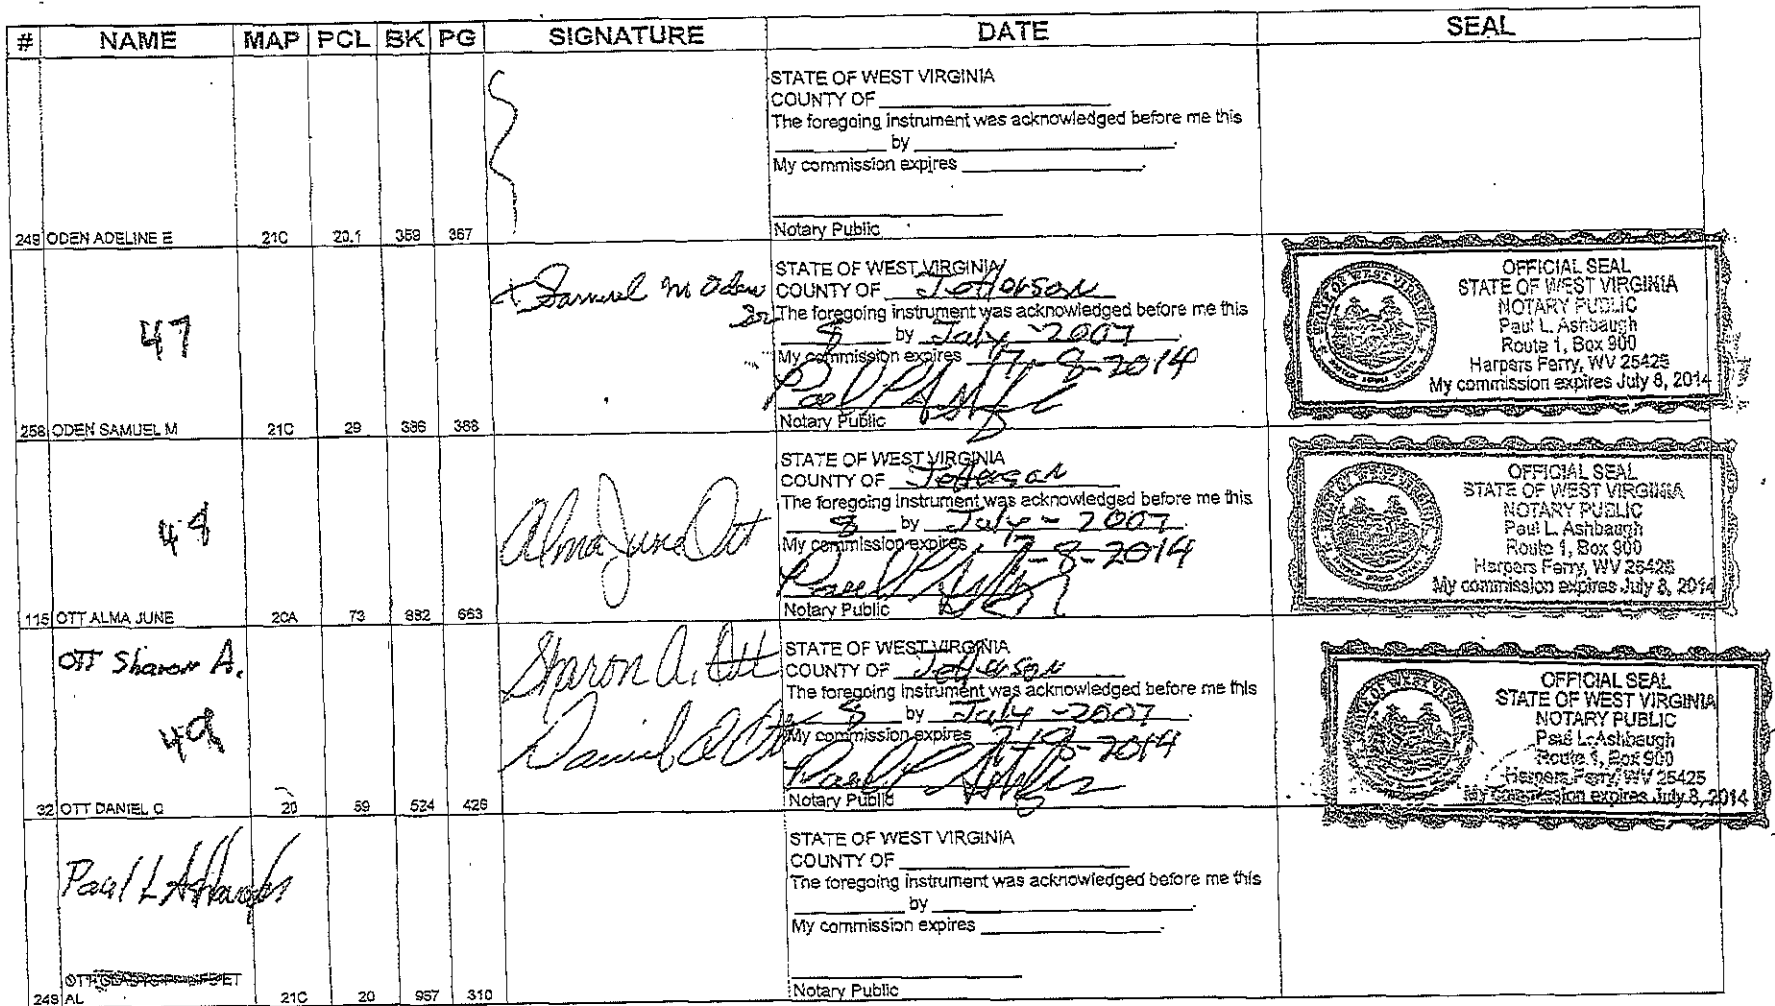 # NAME MAP PCL BK PG SIGNATURE DATE SEAL
STATE OF WEST VIRGINIA
COUNTY OF
The foregoing instrument was acknowledged before me this
by
My commission expires
Notary Public
249 ODEN ADELINE E 21C 20.1 359 367
47
Samuel M Oden
Sr
STATE OF WEST VIRGINIA
COUNTY OF Jefferson
The foregoing instrument was acknowledged before me this
8 by July - 2007
My commission expires 7-8-2014
Notary Public
OFFICIAL SEAL
STATE OF WEST VIRGINIA
NOTARY PUBLIC
Paul L. Ashbaugh
Route 1, Box 900
Harpers Ferry, WV 25425
My commission expires July 8, 2014
258 ODEN SAMUEL M 21C 29 386 388
48
Alma June Ott
STATE OF WEST VIRGINIA
COUNTY OF Jefferson
The foregoing instrument was acknowledged before me this
8 by July - 2007
My commission expires 7-8-2014
Notary Public
OFFICIAL SEAL
STATE OF WEST VIRGINIA
NOTARY PUBLIC
Paul L. Ashbaugh
Route 1, Box 900
Harpers Ferry, WV 25425
My commission expires July 8, 2014
115 OTT ALMA JUNE 20A 73 882 663
OTT Sharon A.
49
Sharon A. Ott
Daniel C Ott
STATE OF WEST VIRGINIA
COUNTY OF Jefferson
The foregoing instrument was acknowledged before me this
8 by July - 2007
My commission expires 7-8-2014
Notary Public
OFFICIAL SEAL
STATE OF WEST VIRGINIA
NOTARY PUBLIC
Paul L. Ashbaugh
Route 1, Box 900
Harpers Ferry, WV 25425
My commission expires July 8, 2014
32 OTT DANIEL C 20 59 524 426
Paul L Ashbaugh
STATE OF WEST VIRGINIA
COUNTY OF
The foregoing instrument was acknowledged before me this
by
My commission expires
Notary Public
OTT ET
AL 21C 20 957 310